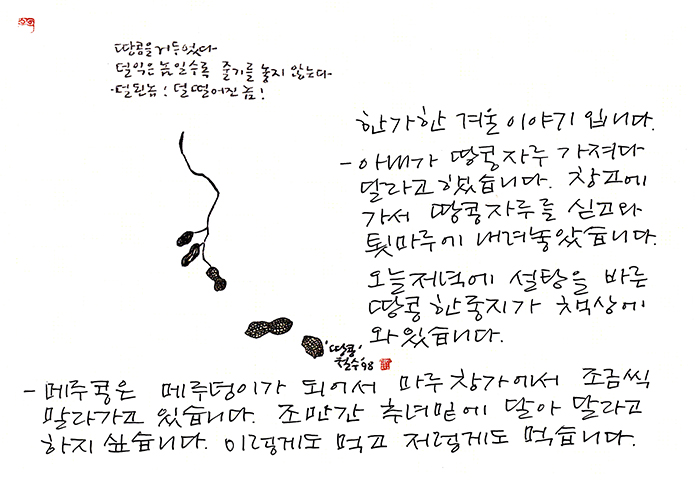 땅콩을 거두었다
덜익은 놈일수록 줄기를 놓지 않는다
덜된놈! 덜 떨어진 놈!
한가한 겨울 이야기 입니다.
- 아내가 땅콩자루 가져다
달라고 했습니다. 창고에
가서 땅콩자루를 싣고와
툇마루에 내려놓았습니다.
오늘저녁에 설탕을 바른
땅콩 한줌지가 책상에
와있습니다.
'땅콩'
철수 '98
- 메주콩은 메주덩이가 되어서 마루창가에서 조금씩
말라가고 있습니다. 조만간 추녀밑에 달아 달라고
하지 싶습니다. 이렇게도 먹고 저렇게도 먹습니다.